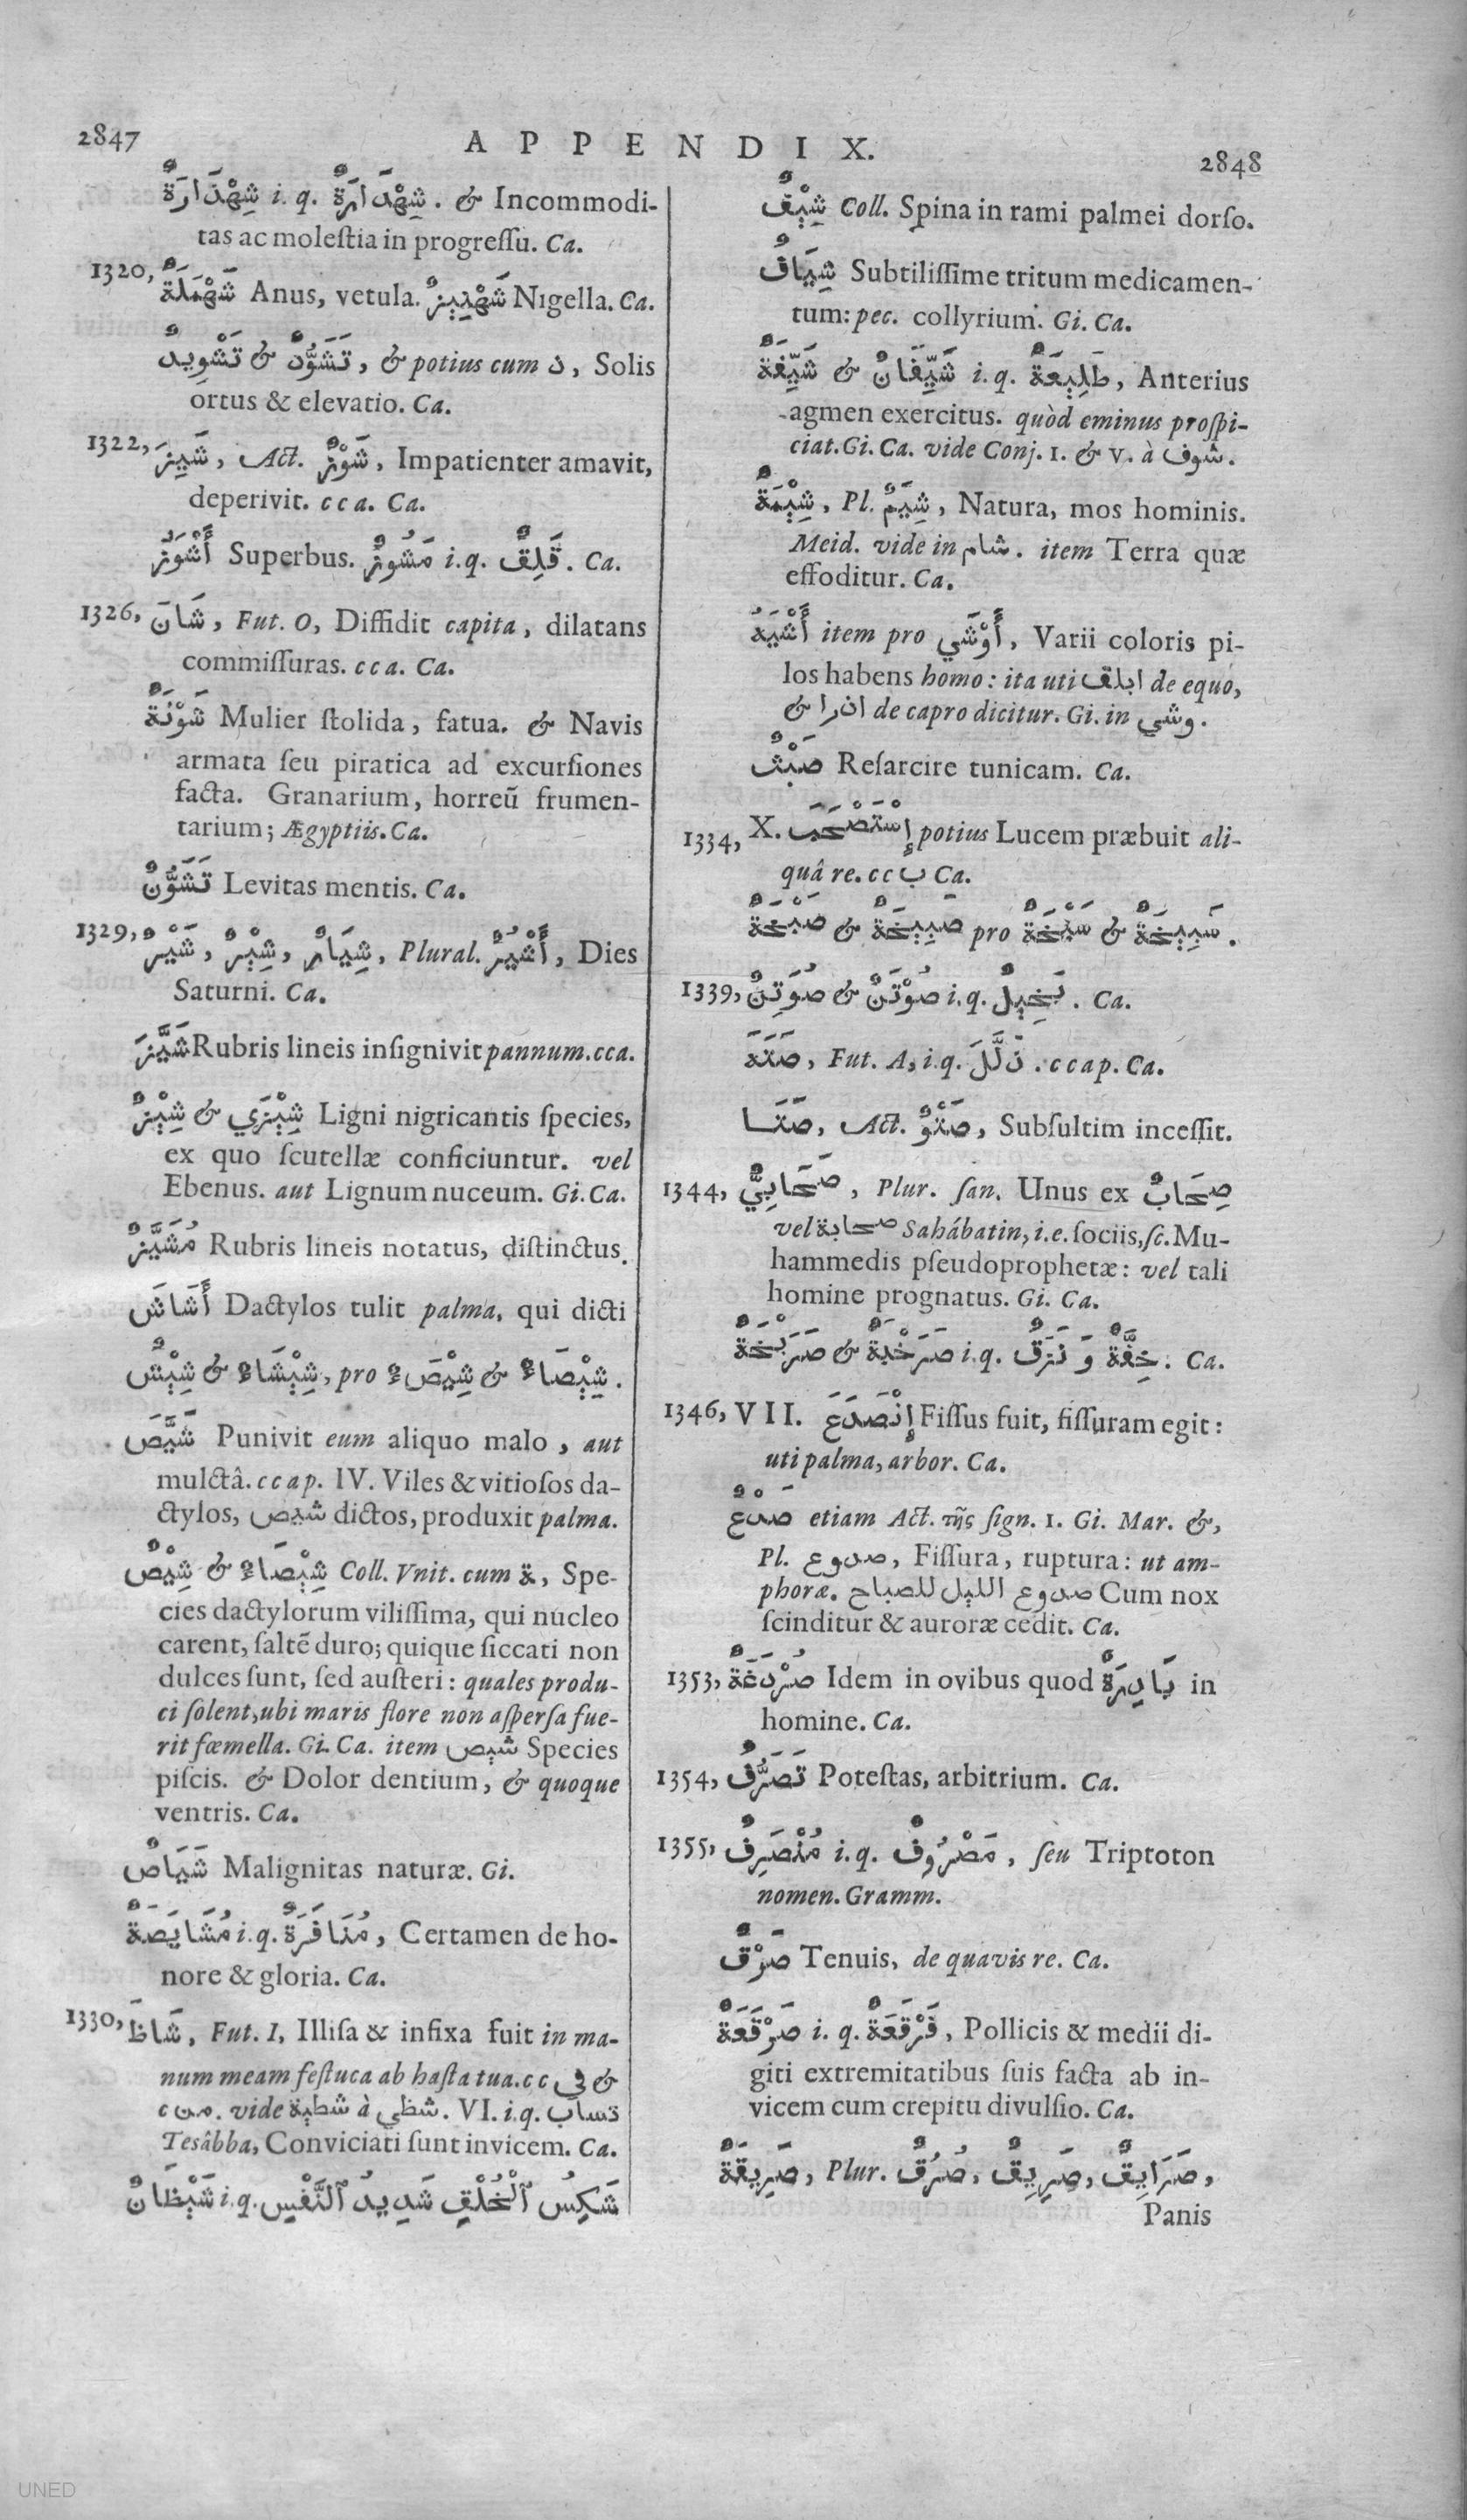 2847
APPENDIX.
2848
شِهْدَارَةٌ i. q. شِهْذَارَةٌ. & Incommodi-
tas ac moleſtia in progreſſu. Ca.
1320, شَهْمَلَةٌ Anus, vetula. شَهْنِيزٌ Nigella. Ca.
تَشْوِيذٌ & تَشَوُّذٌ, & potius cum ن, Solis
ortus & elevatio. Ca.
1322, شَيِزَ, Act. شَوْزٌ, Impatienter amavit,
deperivit. cca. Ca.
أَشْوَزُ Superbus. مَشُوزٌ i.q. قَلِقٌ. Ca.
1326, شَانَ, Fut. O, Diffidit capita, dilatans
commiſſuras. cca. Ca.
شَوْنَةٌ Mulier ſtolida, fatua. & Navis
armata ſeu piratica ad excurſiones
facta. Granarium, horreũ frumen-
tarium; Ægyptiis. Ca.
تَشَوُّنٌ Levitas mentis. Ca.
1329, شَيْرٌ, شِيْرٌ, شِيَارٌ, Plural. أَشْيُرٌ, Dies
Saturni. Ca.
شَيَّزَ Rubris lineis inſignivit pannum. cca.
شِيْزٌ & شِيْزَي Ligni nigricantis ſpecies,
ex quo ſcutellæ conficiuntur. vel
Ebenus. aut Lignum nuceum. Gi. Ca.
مُشَيَّزٌ Rubris lineis notatus, diſtinctus.
أَشَاشَ Dactylos tulit palma, qui dicti
شِيْشٌ & شِيْشَاءُ, pro شِيْصٌ & شِيْصَاءُ.
شَيَّصَ Punivit eum aliquo malo, aut
mulctâ. ccap. IV. Viles & vitioſos da-
ctylos, شيص dictos, produxit palma.
شِيْصٌ & شِيْصَاءُ Coll. Vnit. cum ة, Spe-
cies dactylorum viliſſima, qui nucleo
carent, ſaltẽ duro; quique ſiccati non
dulces ſunt, ſed auſteri: quales produ-
ci ſolent, ubi maris flore non aſperſa fue-
rit fœmella. Gi. Ca. item شيص Species
piſcis. & Dolor dentium, & quoque
ventris. Ca.
شَيَاصٌ Malignitas naturæ. Gi.
مُشَايَصَةٌ i.q. مُنَافَرَةٌ, Certamen de ho-
nore & gloria. Ca.
1330, شَاظَ, Fut. I, Illiſa & infixa fuit in ma-
num meam feſtuca ab haſta tua. cc في &
c من. vide شظية à شظي. VI. i.q. تساب
Tesâbba, Conviciati ſunt invicem. Ca.
شَيْظَانٌ i.q. شَكِسُ ٱلْخُلْقِ شَدِيدُ ٱلنَّفْسِ
شِيْفٌ Coll. Spina in rami palmei dorſo.
شِيَافٌ Subtiliſſime tritum medicamen-
tum: pec. collyrium. Gi. Ca.
شَيِّفَةٌ & شَيِّفَانٌ i.q. طَلِيعَةٌ, Anterius
agmen exercitus. quòd eminus proſpi-
ciat. Gi. Ca. vide Conj. I. & V. à شوف.
شِيْمَةٌ, Pl. شِيَمٌ, Natura, mos hominis.
Meid. vide in شام. item Terra quæ
effoditur. Ca.
أَشْيَهُ item pro أَوْشَي, Varii coloris pi-
los habens homo: ita uti ابلق de equo,
& اذرا de capro dicitur. Gi. in وشي.
صَبْثٌ Reſarcire tunicam. Ca.
1334, X. إِسْتَصْحَبَ potius Lucem præbuit ali-
quâ re. cc ب Ca.
صَبْخَةٌ & صَبِيخَةٌ pro سَبْخَةٌ & سَبِيخَةٌ.
1339, صُوْتَنٌ & صُوَتِنٌ i.q. بَخِيلٌ. Ca.
صَتَهَ, Fut. A, i.q. ذَلَّلَ. ccap. Ca.
صَتَا, Act. صَتْوٌ, Subſultim inceſſit.
1344, صَحَابِيٌّ, Plur. ſan. Unus ex صِحَابٌ
vel صحابة Sahábatin, i.e. ſociis, ſc. Mu-
hammedis pſeudoprophetæ: vel tali
homine prognatus. Gi. Ca.
صَرَبْخَةٌ & صَرَخْبَةٌ i.q. خِفَّةٌ وَ نَزَقٌ. Ca.
1346, VII. إِنْصَدَعَ Fiſſus fuit, fiſſuram egit:
uti palma, arbor. Ca.
صَدْعٌ etiam Act. τῆς ſign. I. Gi. Mar. &,
Pl. صدوع, Fiſſura, ruptura: ut am-
phoræ. صدوع الليل للصباح Cum nox
ſcinditur & auroræ cedit. Ca.
1353, صُرْدَغَةٌ Idem in ovibus quod بَادِرَةٌ in
homine. Ca.
1354, تَصَرُّفٌ Poteſtas, arbitrium. Ca.
1355, مُنْصَرِفٌ i.q. مَصْرُوفٌ, ſeu Triptoton
nomen. Gramm.
صَرْقٌ Tenuis, de quavis re. Ca.
صَرْقَعَةٌ i. q. فَرْقَعَةٌ, Pollicis & medii di-
giti extremitatibus ſuis facta ab in-
vicem cum crepitu divulſio. Ca.
صَرِيقَةٌ, Plur. صُرُقٌ, صَرِيقٌ, صَرَايِقٌ,
Panis
UNED